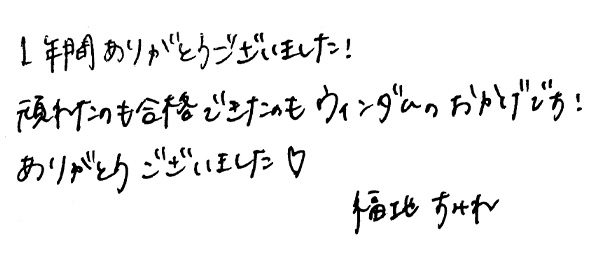 1年間ありがとうございました!
頑れたのも合格できたのもウィンダムのおかげです!
ありがとうございました♡
福地 すみれ